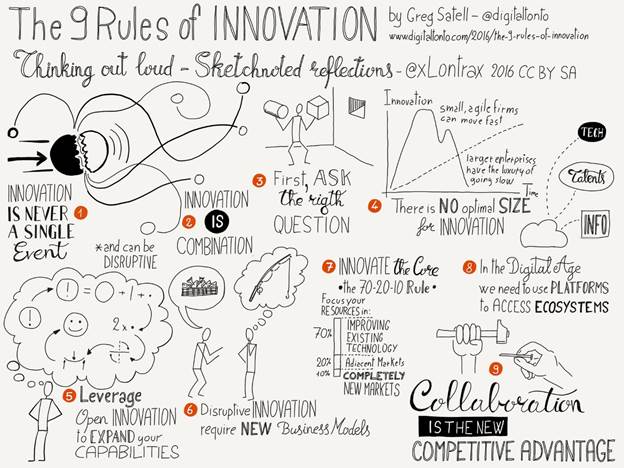 The 9 Rules of INNOVATION
by Greg Satell - @digitaltonto
www.digitaltonto.com/2016/the-9-rules-of-innovation
Thinking out loud - Sketchnoted reflections - @xLontrax 2016 CC BY SA
INNOVATION
IS NEVER
A SINGLE
Event
1
*and can be
DISRUPTIVE
INNOVATION
2 IS
COMBINATION
3 First, ASK
the rigth
QUESTION
Innovation
small, agile firms
can move fast
larger enterprises
have the luxury of
going slow
Time
4 There is NO optimal SIZE
for INNOVATION
TECH
Talents
INFO
! = 0 + 1 + •
2 x •
5 Leverage
Open INNOVATION
to EXPAND your
CAPABILITIES
6 Disruptive INNOVATION
require NEW Business Models
7 INNOVATE the Core
• the 70-20-10 Rule •
Focus your
RESOURCES in:
70% IMPROVING
EXISTING
TECHNOLOGY
20% Adjacent Markets
10% COMPLETELY
NEW MARKETS
8 In the Digital Age
we need to use PLATFORMS
to ACCESS ECOSYSTEMS
9
Collaboration
IS THE NEW
COMPETITIVE ADVANTAGE